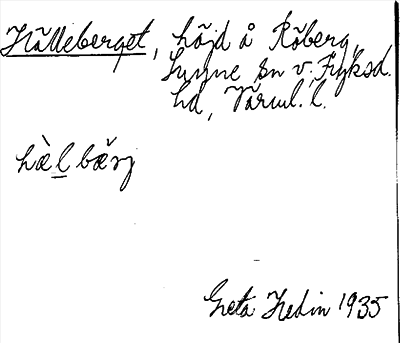 Hälleberget, höjd å Röberg,
Lysvik sn v. Fryksd.
hd, Värml. l.
hæ̀l bæ̌rj
Greta Hedin 1935